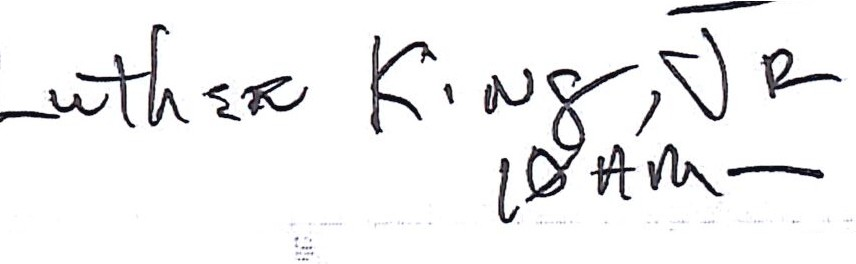 Luther King, JR
10 AM —